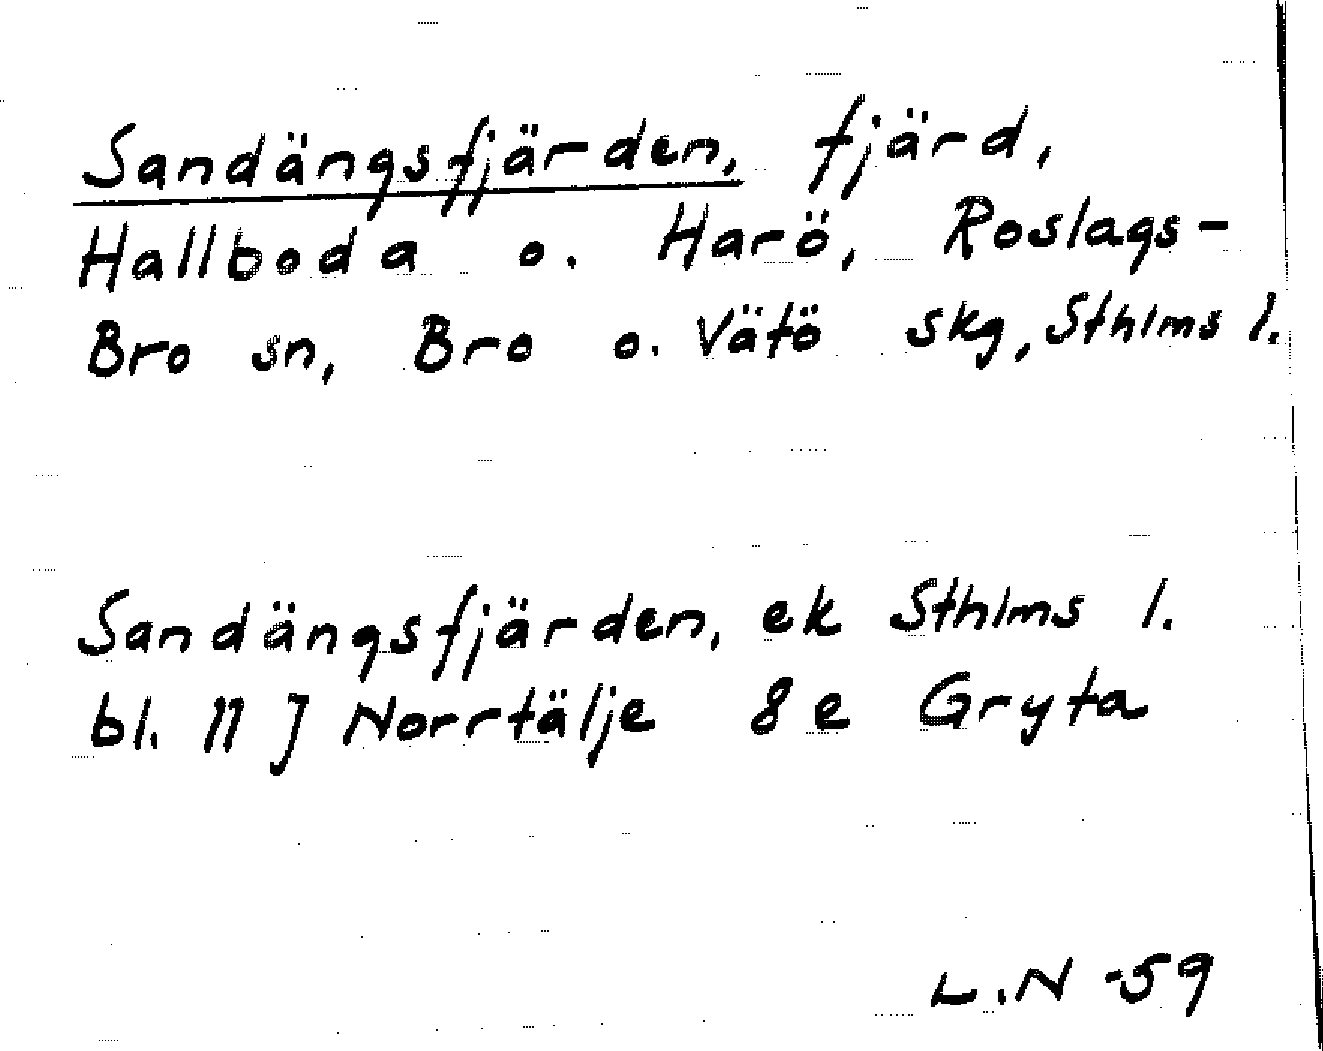 Sandängsfjärden, fjärd,
Hallboda o. Harö, Roslags-
Bro sn, Bro o. Vätö skg, Sthlms l.
Sandängsfjärden, ek Sthlms l.
bl. 11 J Norrtälje 8 e Gryta
L.N -59